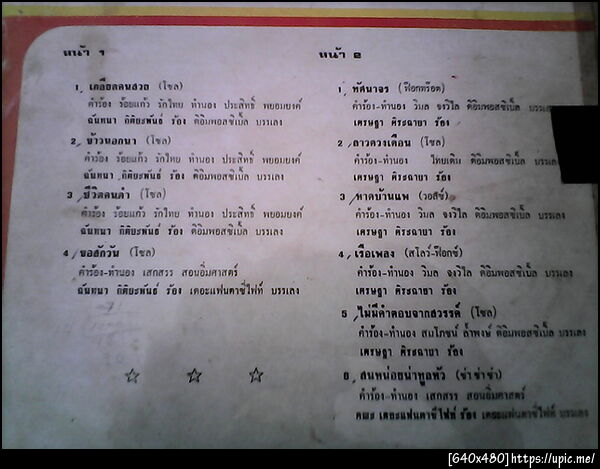 หน้า 1
1, เคลียคนสวย (โซล)
คำร้อง ร้อยแก้ว รักไทย ทำนอง ประสิทธิ์ พยอมยงค์
ฉันทนา กิติยะพันธ์ ร้อง ดิอิมพอสซิเบิ้ล บรรเลง
2, ข้าวนอกนา (โซล)
คำร้อง ร้อยแก้ว รักไทย ทำนอง ประสิทธิ์ พยอมยงค์
ฉันทนา กิติยะพันธ์ ร้อง ดิอิมพอสซิเบิ้ล บรรเลง
3 ชีวิตคนดำ (โซล)
คำร้อง ร้อยแก้ว รักไทย ทำนอง ประสิทธิ์ พยอมยงค์
ฉันทนา กิติยะพันธ์ ร้อง ดิอิมพอสซิเบิ้ล บรรเลง
4 ขอสักวัน (โซล)
คำร้อง-ทำนอง เสกสรร สอนอิ่มศาสตร์
ฉันทนา กิติยะพันธ์ ร้อง เดอะแฟนตาซี่ไฟท์ บรรเลง
หน้า 2
1, ทัศนาจร (ฟ๊อกทร๊อต)
คำร้อง-ทำนอง วิมล จงวิไล ดิอิมพอสซิเบิ้ล
เศรษฐา ศิระฉายา ร้อง
2 ลาวดวงเดือน (โซล)
คำร้อง-ทำนอง ไทยเดิม ดิอิมพอสซิเบิ้ล บรรเลง
เศรษฐา ศิระฉายา ร้อง
3 หาดบ้านแพ (วอลซ์)
คำร้อง-ทำนอง วิมล จงวิไล ดิอิมพอสซิเบิ้ล บรรเลง
เศรษฐา ศิระฉายา ร้อง
4, เรือเพลง (สโลว์-ฟ๊อกซ์)
คำร้อง-ทำนอง วิมล จงวิไล ดิอิมพอสซิเบิ้ล บรรเลง
เศรษฐา ศิระฉายา ร้อง
5 ไม่มีคำตอบจากสวรรค์ (โซล)
คำร้อง-ทำนอง สมโภชน์ ล้ำพงษ์ ดิอิมพอสซิเบิ้ล บรรเลง
เศรษฐา ศิระฉายา ร้อง
6, สนหน่อยน่าทูลหัว (ช่า ช่า ช่า)
คำร้อง-ทำนอง เสกสรร สอนอิ่มศาสตร์
คณะ เดอะแฟนตาซี่ไฟท์ ร้อง เดอะแฟนตาซี่ไฟท์ บรรเลง
[640x480]https://upic.me/